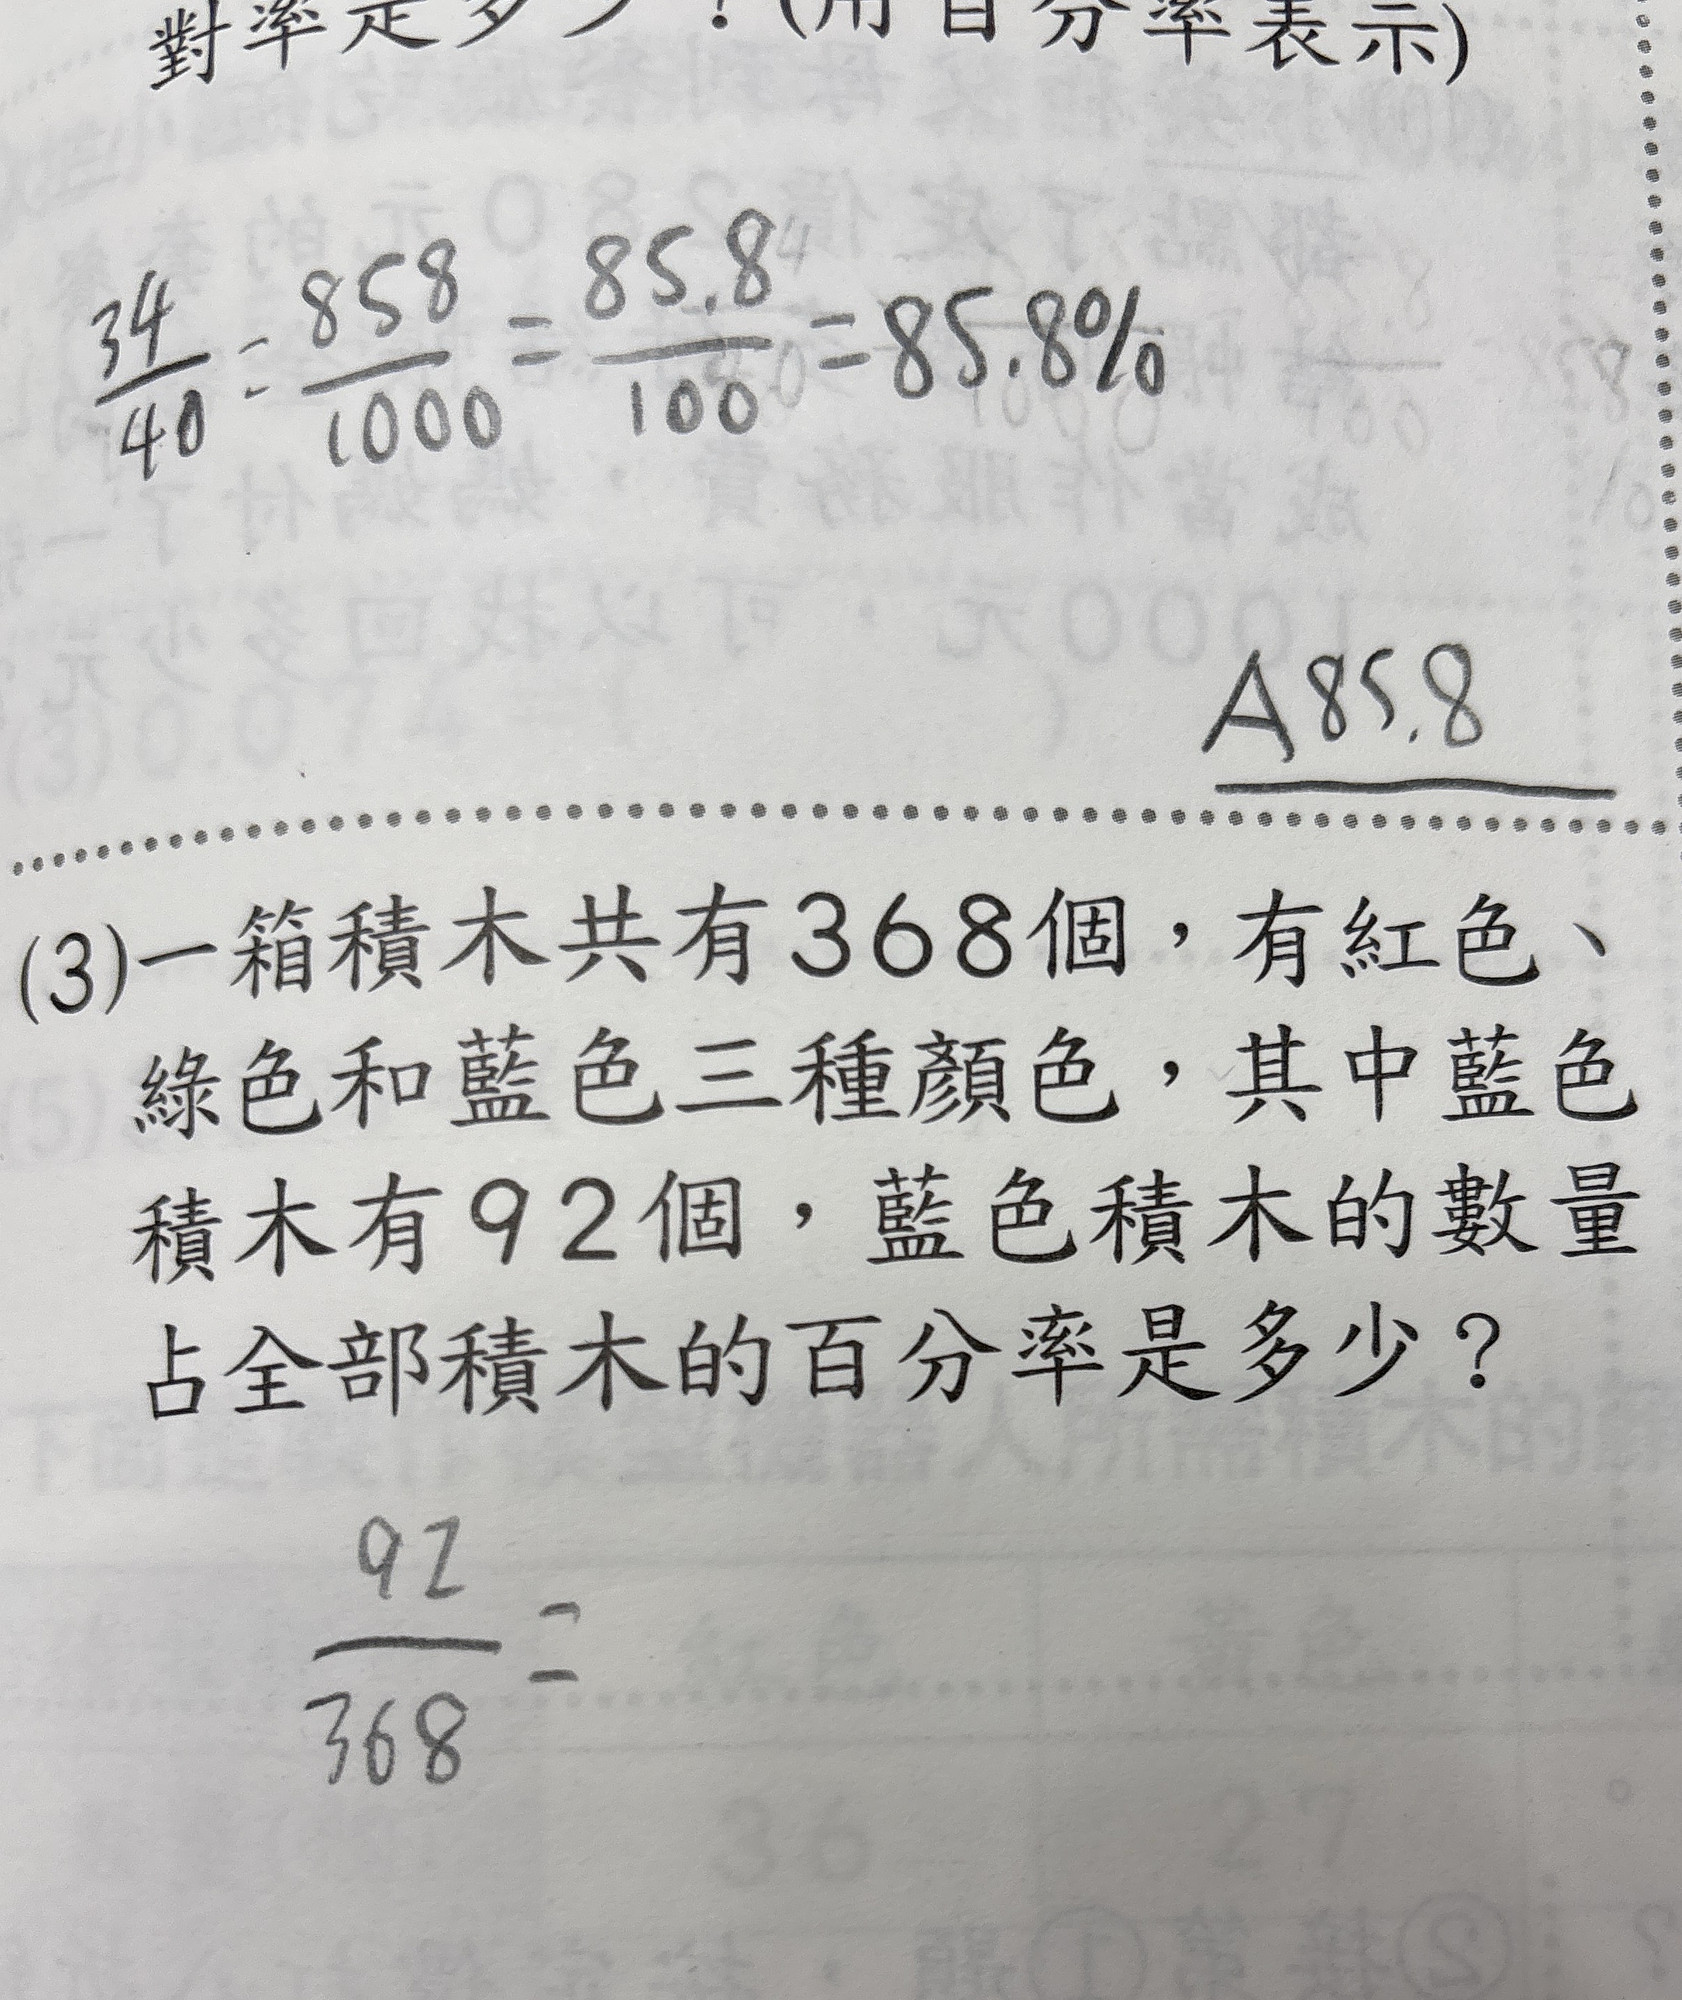 對率是多少？(用百分率表示)
34/40 = 858/1000 = 85.8/100 = 85.8%
A 85.8
(3)一箱積木共有368個，有紅色、
綠色和藍色三種顏色，其中藍色
積木有92個，藍色積木的數量
占全部積木的百分率是多少？
92/368 =